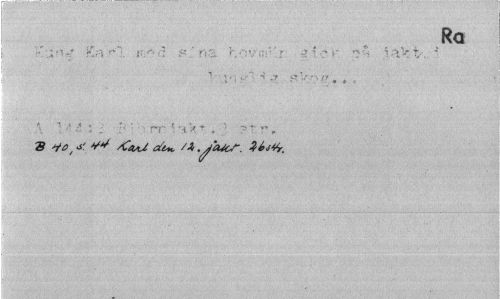 Ra
Kung Karl med sina hovmän gick på jakt i
kunglig skog...
A 144:3 Björnjakt.3 str.
B 40, s. 44 Karl den 12. jakt. 26 str.